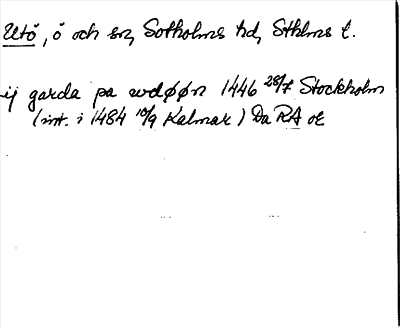 Utö, ö och sn, Sotholms hd, Sthlms l.
ij garda pa wdøøn 1446 28/7 Stockholm
(int. i 1484 10/9 Kalmar) Da RA or